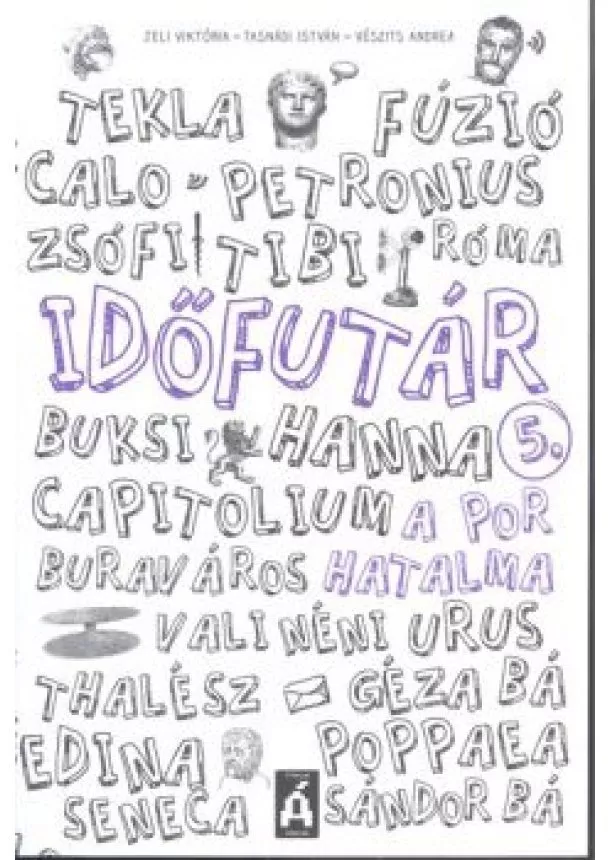 JELI VIKTÓRIA – TASNÁDI ISTVÁN – VÉSZITS ANDREA
TEKLA FÚZIÓ
CALO PETRONIUS
ZSÓFI TIBI RÓMA
IDŐFUTÁR
BUKSI HANNA 5.
CAPITOLIUM A POR
BURAVÁROS HATALMA
VALI NÉNI URUS
THALÉSZ GÉZA BÁ
EDINA POPPAEA
SENECA Á SÁNDOR BÁ